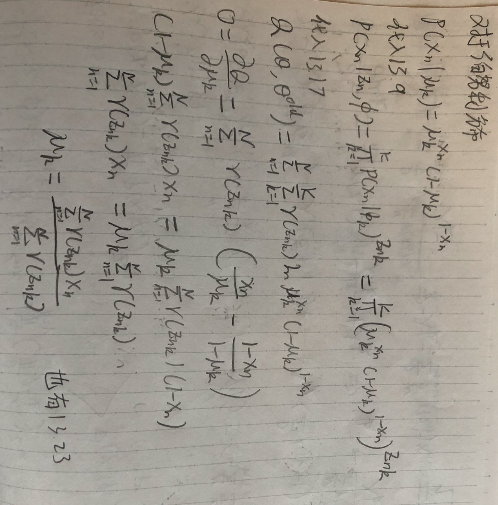 对于伯努利分布
p(xₙ|μₖ) = μₖ^{xₙ} (1-μₖ)^{1-xₙ}
代入13.9
p(xₙ|zₙ,φ) = ∏_{k=1}^{K} p(xₙ|φₖ)^{zₙₖ} = ∏_{k=1}^{K} (μₖ^{xₙ} (1-μₖ)^{1-xₙ})^{zₙₖ}
代入13.17
Q(θ,θ^{old}) = ∑_{n=1}^{N} ∑_{k=1}^{K} γ(zₙₖ) ln μₖ^{xₙ} (1-μₖ)^{1-xₙ}
0 = ∂Q/∂μₖ = ∑_{n=1}^{N} γ(zₙₖ) (xₙ/μₖ - (1-xₙ)/(1-μₖ))
(1-μₖ) ∑_{n=1}^{N} γ(zₙₖ) xₙ = μₖ ∑_{n=1}^{N} γ(zₙₖ) (1-xₙ)
∑_{n=1}^{N} γ(zₙₖ) xₙ = μₖ ∑_{n=1}^{N} γ(zₙₖ)
μₖ = ∑_{n=1}^{N} γ(zₙₖ) xₙ / ∑_{n=1}^{N} γ(zₙₖ) 也有13.23